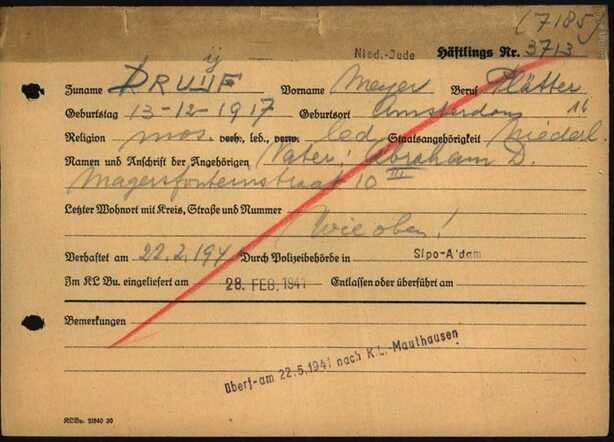 (7185)
Nied.-Jude Häftlings Nr. 3713
ij
Zuname DRUIJF Vorname Meyer Beruf Plätter
Geburtstag 13-12-1917 Geburtsort Amsterdam 16
Religion mos. verh., led., verw. led Staatsangehörigkeit Niederl.
Namen und Anschrift der Angehörigen Vater: Abraham D.
Magersfonteinstraat 10 III
Letzter Wohnort mit Kreis, Straße und Nummer
Wie oben!
Verhaftet am 22.2.1941 Durch Polizeibehörde in Sipo-A'dam
Im KL Bu. eingeliefert am 28. FEB. 1941 Entlassen oder überführt am
Bemerkungen
überf.am 22.5.1941 nach K.L.-Mauthausen